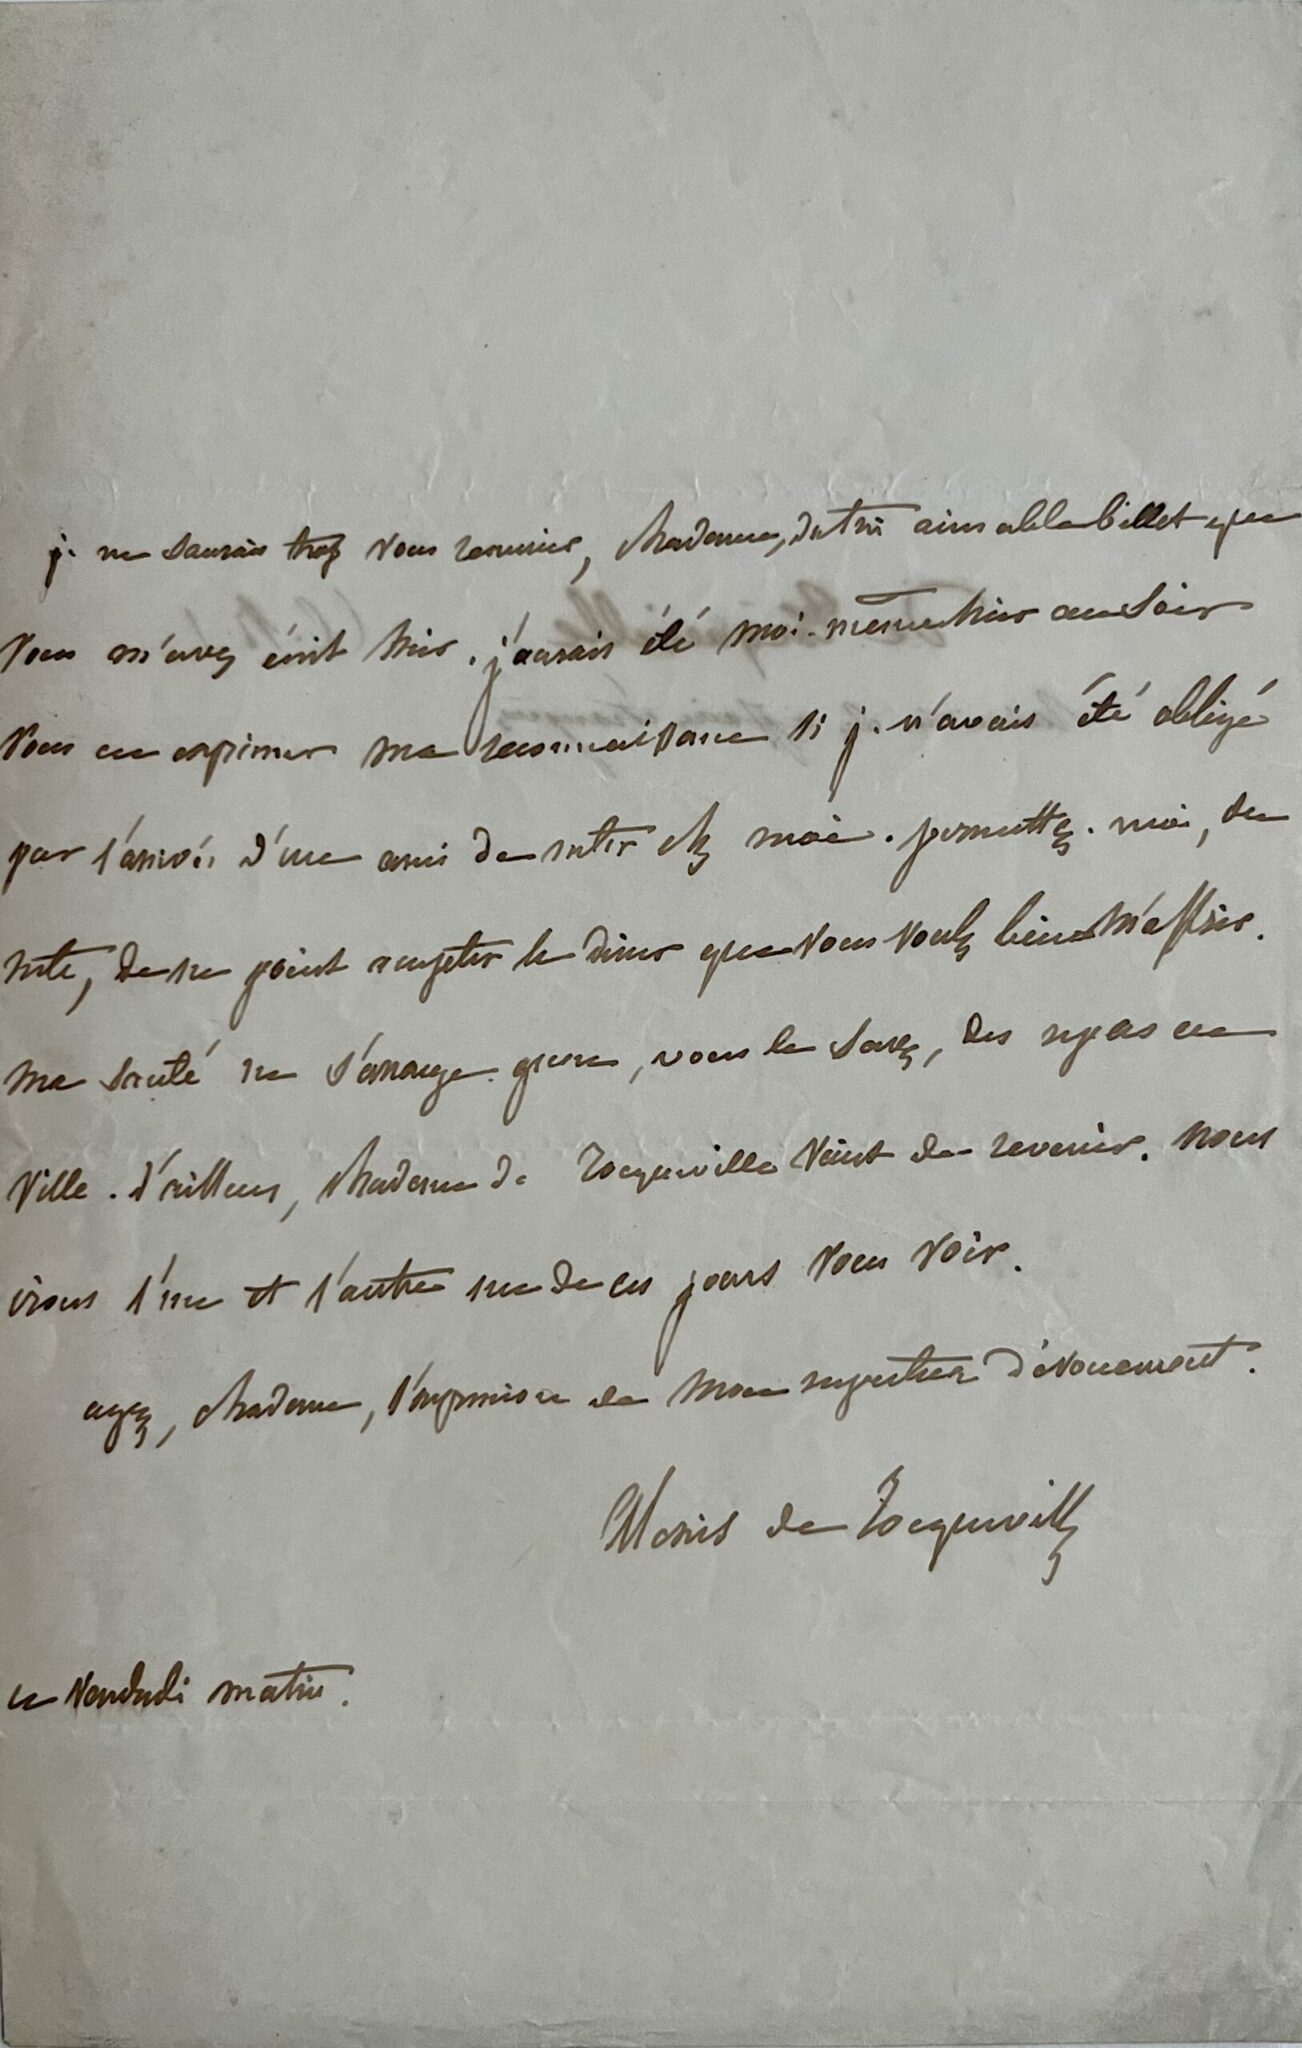 je ne saurais trop vous remercier, Madame, du très aimable billet que
vous m'avez écrit hier. j'aurais été moi-même hier au soir
vous en exprimer ma reconnaissance si je n'avais été obligé
par l'arrivée d'un ami de rester chez moi. permettez-moi, du
reste, de ne point accepter le diner que vous voulez bien m'offrir.
ma santé ne s'arrange guère, vous le savez, des repas en
ville. d'ailleurs, Madame de Tocqueville vient de revenir. nous
irons l'un et l'autre un de ces jours vous voir.
agréez, Madame, l'expression de mon respectueux dévouement.
Alexis de Tocqueville
ce vendredi matin.